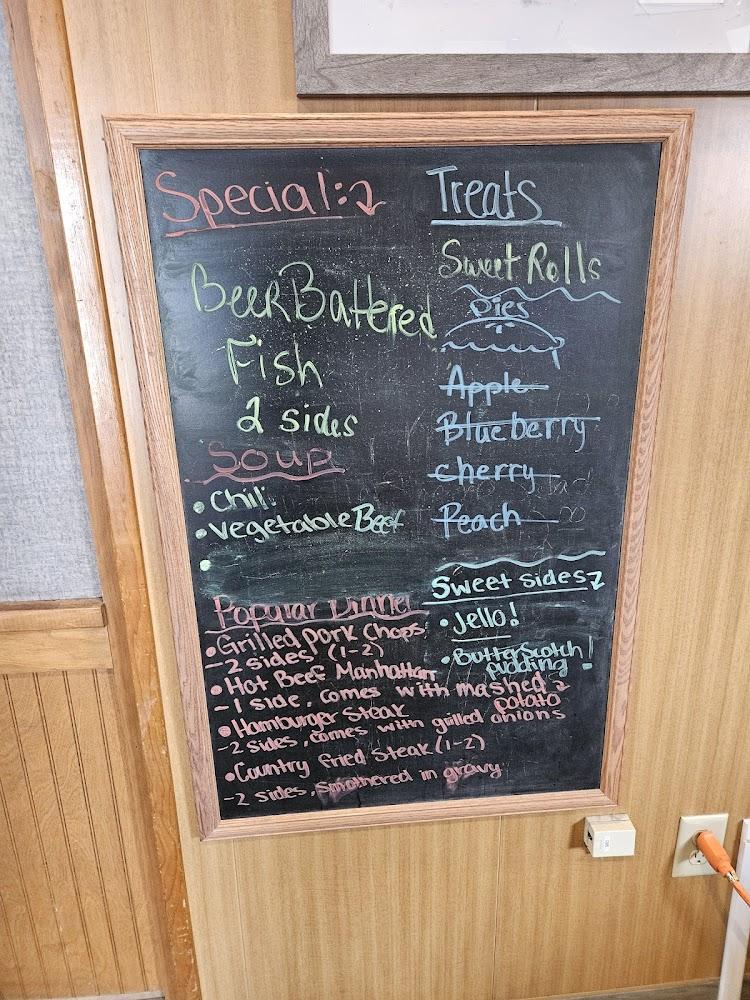 Special:
Beer Battered
Fish
2 sides
Soup
• Chili
• vegetable Beef
•
Popular Dinner
• Grilled pork chops
- 2 sides (1-2)
• Hot Beef Manhattan
- 1 side, comes with mashed
potato
• Hamburger Steak
- 2 sides, comes with grilled onions
• Country fried steak (1-2)
- 2 sides, smothered in gravy
Treats
Sweet Rolls
Pies
Apple
Blueberry
cherry
Peach
Sweet sides
• Jello!
• Butterscotch
pudding!